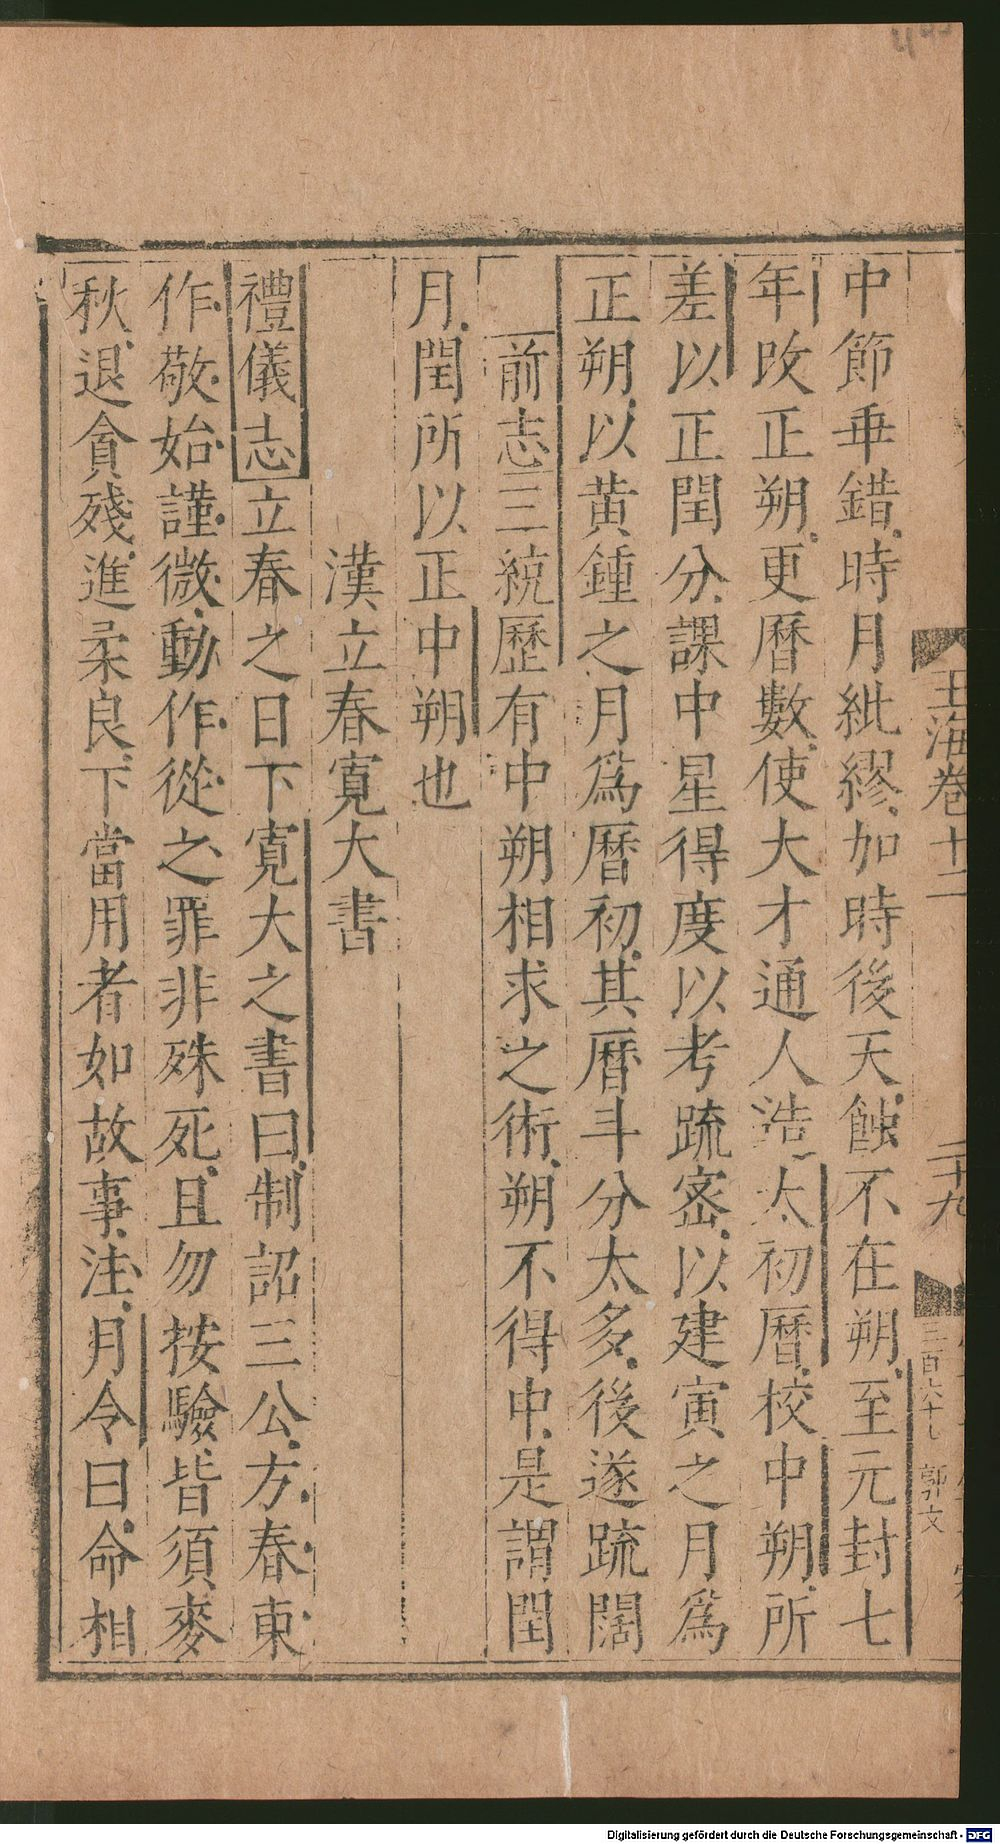 中節乖錯時月紕繆加時後天蝕不在朔至元封七
年改正朔更曆數使大才通人造太初曆校中朔所
差以正閏分課中星得度以考疏密以建寅之月爲
正朔以黃鍾之月爲曆初其曆斗分太多後遂疏闊
前志三統歷有中朔相求之術朔不得中是謂閏
月閏所以正中朔也
漢立春寬大書
禮儀志立春之日下寬大之書曰制詔三公方春東
作敬始謹微動作從之罪非殊死且勿按驗皆須麥
秋退貪殘進柔良下當用者如故事注月令曰命相
玉海卷十二
二十九
三百六十七 郭文
Digitalisierung gefördert durch die Deutsche Forschungsgemeinschaft - DFG